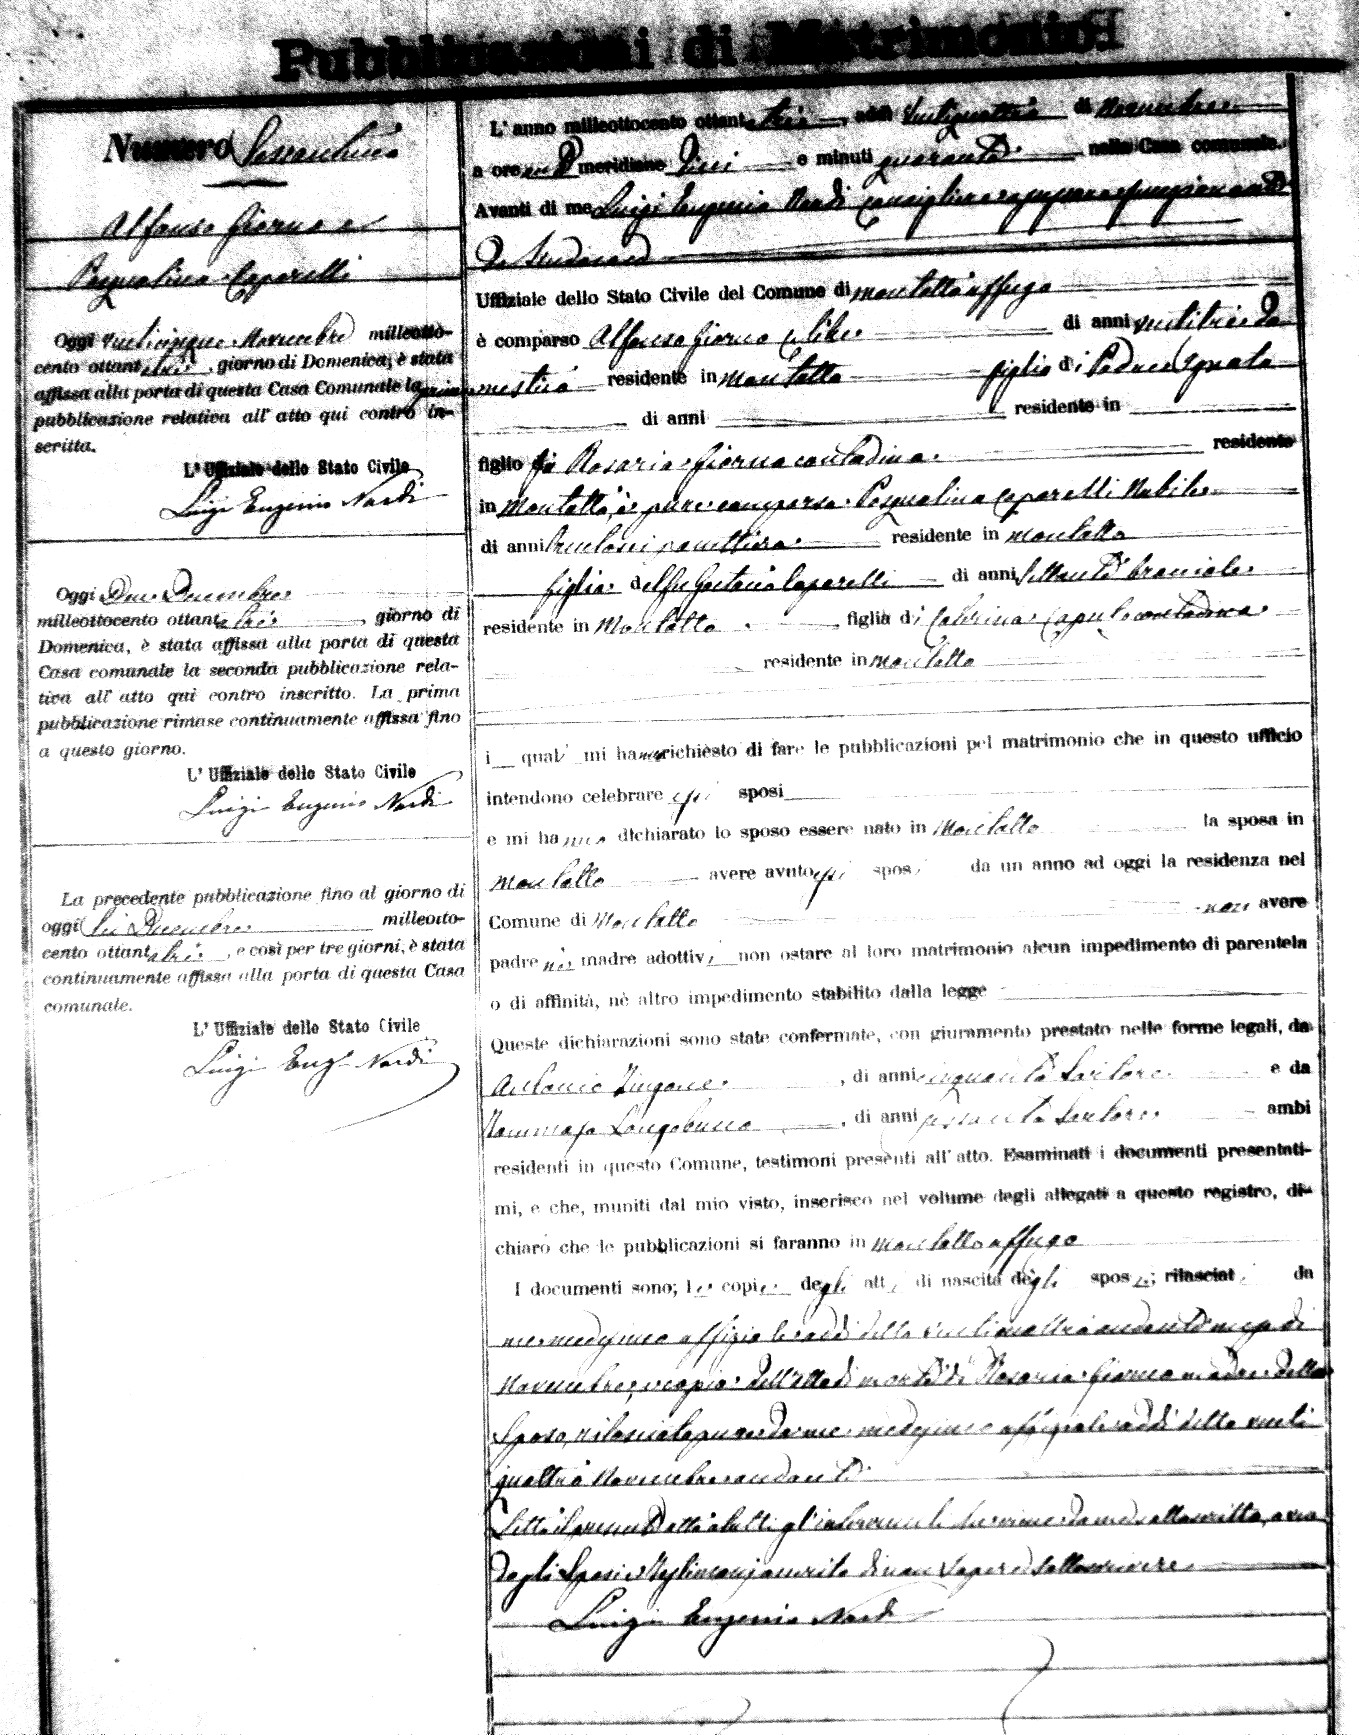 Pubblicazioni di Matrimonio
Numero
Alfonso Giorno e
Pasqualina Caparelli
Oggi venticinque Novembre milleotto-
cento ottantatrè, giorno di Domenica, è stata
affissa alla porta di questa Casa Comunale la prima
pubblicazione relativa all' atto qui contro in-
scritta.
L' Uffiziale dello Stato Civile
Luigi Eugenio Nardi
Oggi Due Decembre
milleottocento ottantatrè giorno di
Domenica, è stata affissa alla porta di questa
Casa comunale la seconda pubblicazione rela-
tiva all' atto qui contro inscritto. La prima
pubblicazione rimase continuamente affissa fino
a questo giorno.
L' Uffiziale dello Stato Civile
Luigi Eugenio Nardi
La precedente pubblicazione fino al giorno di
oggi sei Decembre milleotto-
cento ottantatrè, e così per tre giorni, è stata
continuamente affissa alla porta di questa Casa
comunale.
L' Uffiziale dello Stato Civile
Luigi Eug° Nardi
L' anno milleottocento ottantatrè, addì ventiquattro di Novembre
a ore anti meridiane dieci e minuti quaranta nella Casa comunale.
Avanti di me Luigi Eugenio Nardi Consigliere funzionante
da Sindaco
Uffiziale dello Stato Civile del Comune di Montalto Uffugo
è comparso Alfonso Giorno celibe di anni ventitrè do
mestico residente in Montalto figlio di Padre ignoto
di anni residente in
figlio di Rosaria Giorno contadina residente
in Montalto, è pure comparsa Pasqualina Caparelli Nubile
di anni panettiera residente in Montalto
figlia del fu Gaetano Caparelli di anni settanta bracciale
residente in Montalto figlia di Caterina Caputo contadina
residente in Montalto
i quali mi hanno richiesto di fare le pubblicazioni pel matrimonio che in questo ufficio
intendono celebrare essi sposi
e mi hanno dichiarato lo sposo essere nato in Montalto la sposa in
Montalto avere avuto essi sposi da un anno ad oggi la residenza nel
Comune di Montalto non avere
padre nè madre adottivi non ostare al loro matrimonio alcun impedimento di parentela
o di affinità, nè altro impedimento stabilito dalla legge
Queste dichiarazioni sono state confermate, con giuramento prestato nelle forme legali, da
Antonio Zingone, di anni cinquanta Sartore e da
Tommaso Longobucco, di anni sessanta Sartore ambi
residenti in questo Comune, testimoni presenti all' atto. Esaminati i documenti presentati-
mi, e che, muniti dal mio visto, inserisco nel volume degli allegati a questo registro, di-
chiaro che le pubblicazioni si faranno in Montalto Uffugo
I documenti sono; le copie degli atti di nascita degli sposi; rilasciati da
me medesimo uffiziale addì detto ventiquattro andante mese di
Novembre, e copia dell'atto di morte di Rosaria Giorno madre dello
Sposo, rilasciata pure da me medesimo uffiziale addì detto venti
quattro Novembre andante
Letto il presente atto a tutti gl'intervenuti da me sottoscritto, e non
dagli Sposi e Testimoni di non sapere sottoscrivere
Luigi Eugenio Nardi